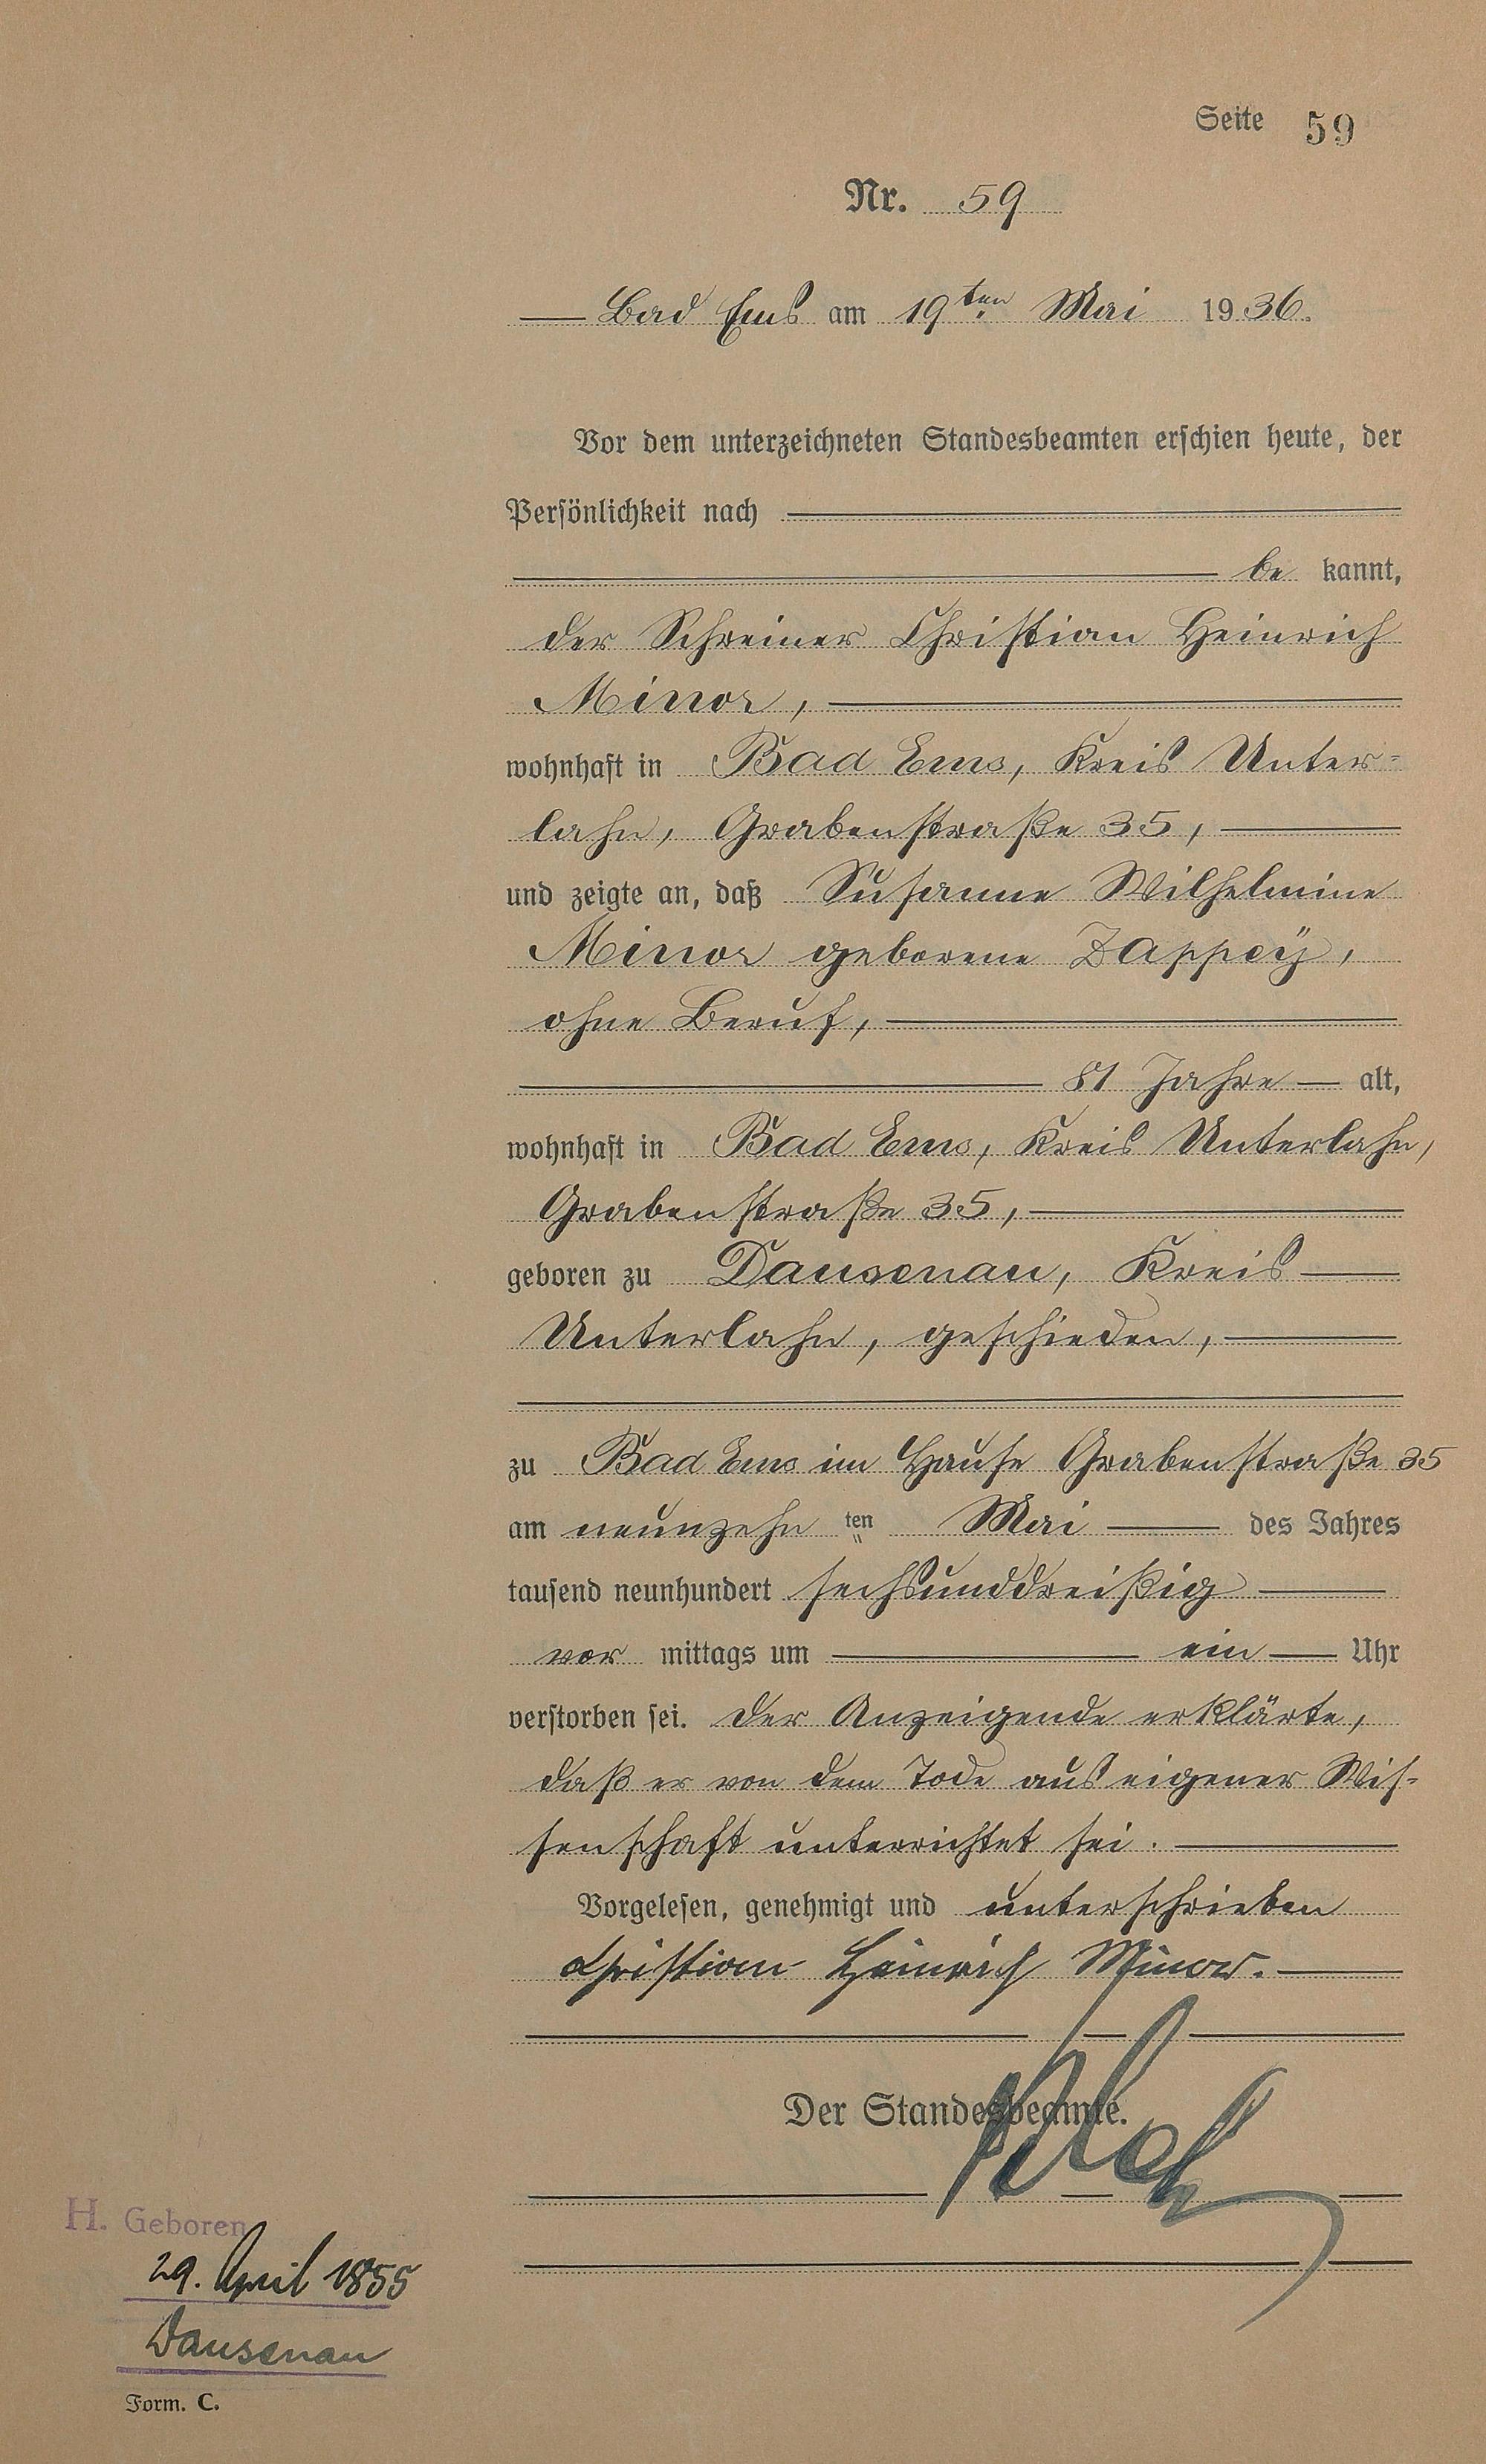 Seite 59
Nr. 59
Bad Ems am 19ten Mai 1936.
Vor dem unterzeichneten Standesbeamten erschien heute, der
Persönlichkeit nach
be kannt,
der Schreiner Christian Heinrich
Minor,
wohnhaft in Bad Ems, Kreis Unter-
lahn, Grabenstraße 35,
und zeigte an, daß Susanne Wilhelmine
Minor geborene Zappey,
ohne Beruf,
81 Jahre alt,
wohnhaft in Bad Ems, Kreis Unterlahn,
Grabenstraße 35,
geboren zu Dausenau, Kreis
Unterlahn, geschieden,
zu Bad Ems im Hause Grabenstraße 35
am neunzehn ten Mai des Jahres
tausend neunhundert sechsunddreißig
vor mittags um ein Uhr
verstorben sei. Der Anzeigende erklärte,
daß er von dem Tode aus eigener Wis-
senschaft unterrichtet sei.
Vorgelesen, genehmigt und unterschrieben
Christian Heinrich Minor.
Der Standesbeamte.
H. Geboren
29. April 1855
Dausenau
Form. C.